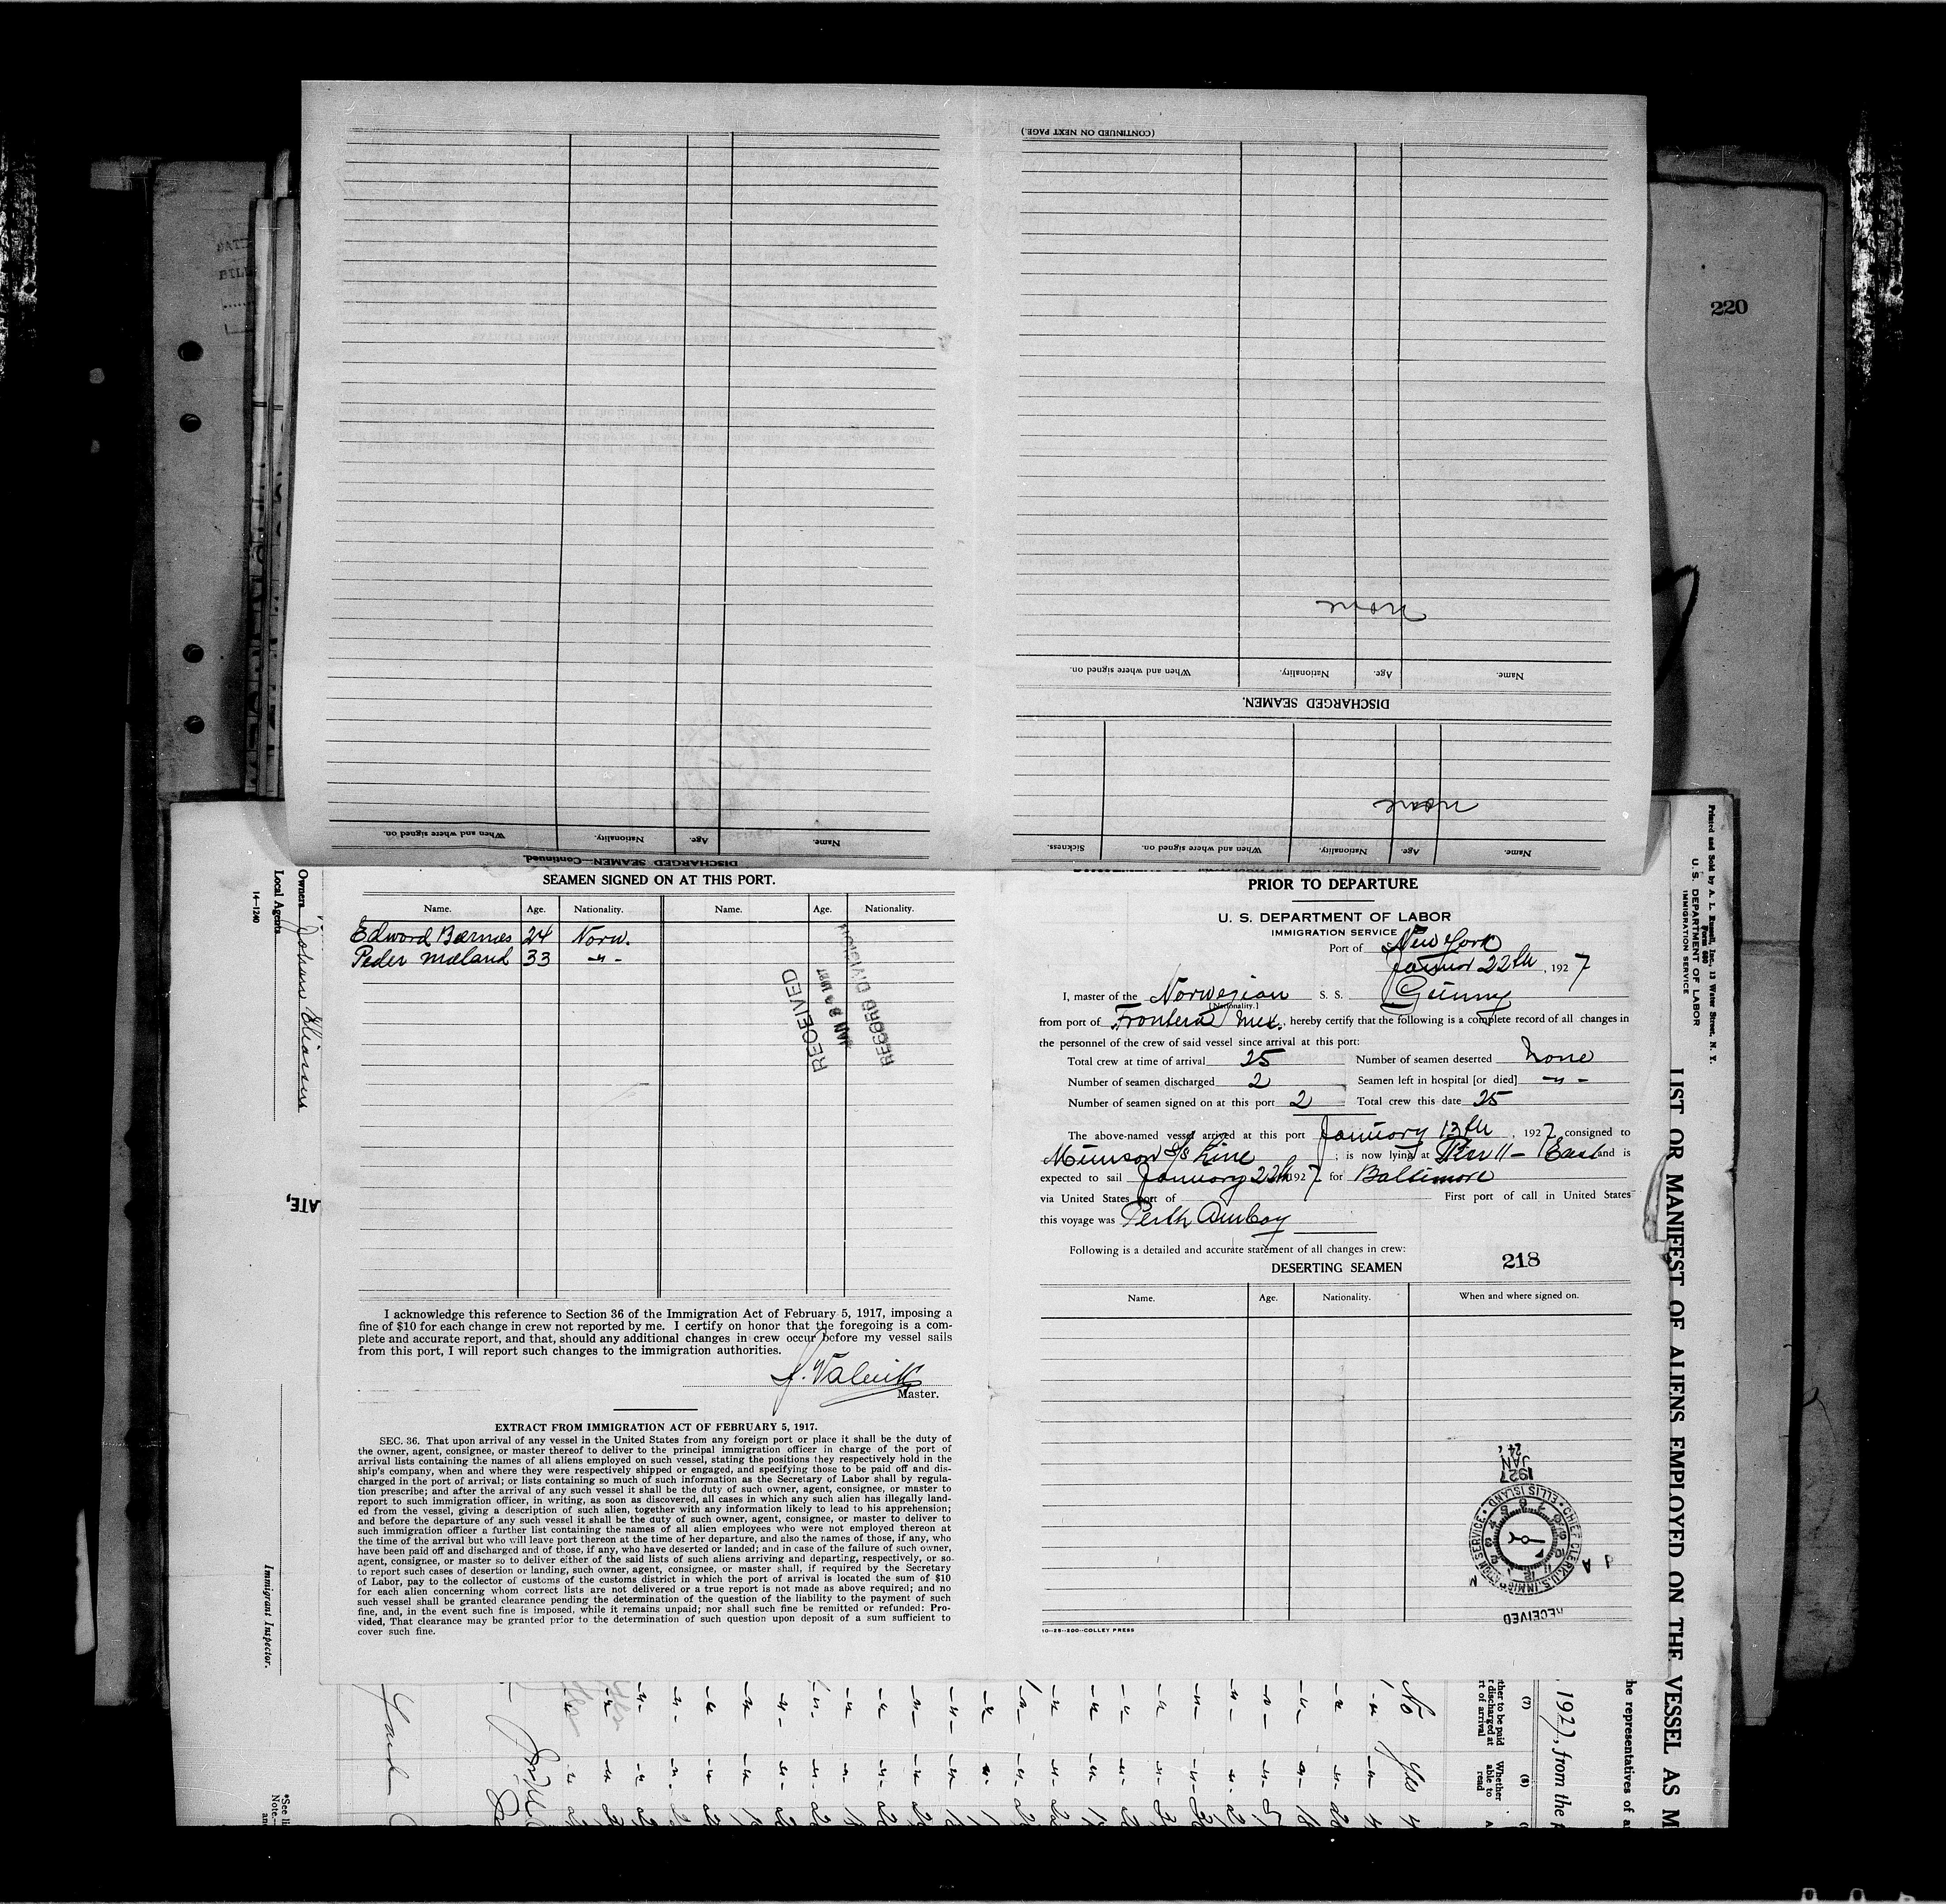 (CONTINUED ON NEXT PAGE.)
none
Name. Age. Nationality. When and where signed on.
DISCHARGED SEAMEN.
none
Name. Age. Nationality. When and where signed on. Sickness.
Name. Age. Nationality. When and where signed on.
DISCHARGED SEAMEN—Continued.
220
SEAMEN SIGNED ON AT THIS PORT.
Name. Age. Nationality. Name. Age. Nationality.
Edword Bærnes 24 Norw.
Peder Mæland 33 -"-
RECEIVED
JAN 24 1927
RECORD DIVISION
I acknowledge this reference to Section 36 of the Immigration Act of February 5, 1917, imposing a
fine of $10 for each change in crew not reported by me. I certify on honor that the foregoing is a com-
plete and accurate report, and that, should any additional changes in crew occur before my vessel sails
from this port, I will report such changes to the immigration authorities.
Master.
EXTRACT FROM IMMIGRATION ACT OF FEBRUARY 5, 1917.
SEC. 36. That upon arrival of any vessel in the United States from any foreign port or place it shall be the duty of
the owner, agent, consignee, or master thereof to deliver to the principal immigration officer in charge of the port of
arrival lists containing the names of all aliens employed on such vessel, stating the positions they respectively hold in the
ship's company, when and where they were respectively shipped or engaged, and specifying those to be paid off and dis-
charged in the port of arrival; or lists containing so much of such information as the Secretary of Labor shall by regula-
tion prescribe; and after the arrival of any such vessel it shall be the duty of such owner, agent, consignee, or master to
report to such immigration officer, in writing, as soon as discovered, all cases in which any such alien has illegally land-
ed from the vessel, giving a description of such alien, together with any information likely to lead to his apprehension;
and before the departure of any such vessel it shall be the duty of such owner, agent, consignee, or master to deliver to
such immigration officer a further list containing the names of all alien employees who were not employed thereon at
the time of the arrival but who will leave port thereon at the time of her departure, and also the names of those, if any, who
have been paid off and discharged and of those, if any, who have deserted or landed; and in case of the failure of such owner,
agent, consignee, or master so to deliver either of the said lists of such aliens arriving and departing, respectively, or so
to report such cases of desertion or landing, such owner, agent, consignee, or master shall, if required by the Secretary
of Labor, pay to the collector of customs of the customs district in which the port of arrival is located the sum of $10
for each alien concerning whom correct lists are not delivered or a true report is not made as above required; and no
such vessel shall be granted clearance pending the determination of the question of the liability to the payment of such
fine, and, in the event such fine is imposed, while it remains unpaid; nor shall such fine be remitted or refunded: Pro-
vided, That clearance may be granted prior to the determination of such question upon deposit of a sum sufficient to
cover such fine.
PRIOR TO DEPARTURE
U. S. DEPARTMENT OF LABOR
IMMIGRATION SERVICE
Port of New York
22th, 1927
I, master of the Norwegian S. S. Gunny
[Nationality.]
from port of Frontera Mex., hereby certify that the following is a complete record of all changes in
the personnel of the crew of said vessel since arrival at this port:
Total crew at time of arrival 25 Number of seamen deserted None
Number of seamen discharged 2 Seamen left in hospital [or died] -"-
Number of seamen signed on at this port 2 Total crew this date 25
The above-named vessel arrived at this port January 13th, 1927 consigned to
Munson S/S Line; is now lying at Pier 11 - East and is
expected to sail January 22th 1927 for Baltimore
via United States port of First port of call in United States
this voyage was Perth Amboy
Following is a detailed and accurate statement of all changes in crew:
218
DESERTING SEAMEN
Name. Age. Nationality. When and where signed on.
RECEIVED
CHIEF CLERK U.S. IMMIGRATION SERVICE • ELLIS ISLAND •
1927 JAN 24
10-25-200-COLLEY PRESS
Owners Johan Eliassen
Local Agents
14-1240
Immigrant Inspector.
Printed and Sold by A. L. Russell, Inc., 12 Water Street, N. Y.
Form 680
U. S. DEPARTMENT OF LABOR
IMMIGRATION SERVICE
LIST OR MANIFEST OF ALIENS EMPLOYED ON THE VESSEL AS M
he representatives of
, 1927, from the
(7)
(8)
Whether able to read
No Yes